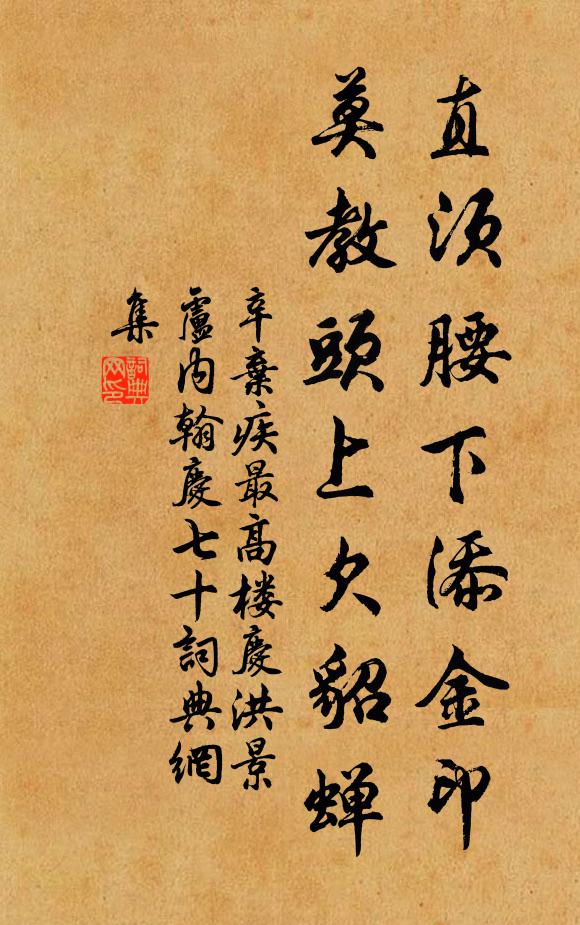 直須腰下添金印
莫教頭上欠貂蟬
辛棄疾最高楼慶洪景
盧内翰慶七十詞典網
集
詞典
网印